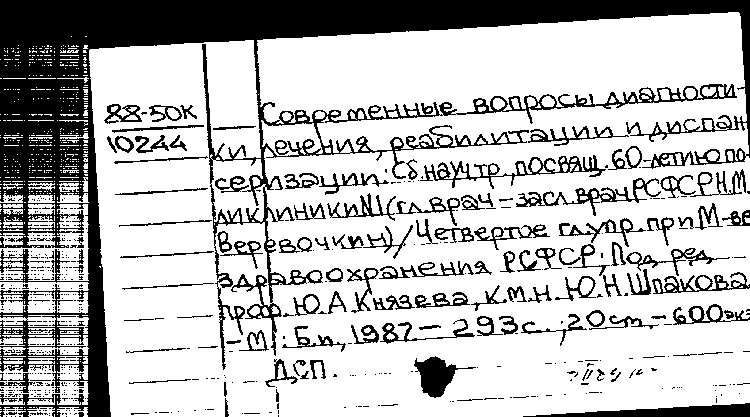 88-50К
10244
Современные вопросы диагности-
ки, лечения, реабилитации и диспан
серизации: Сб. науч. тр., посвящ. 60-летию по
ликлиники №1 (гл. врач – засл. врач РСФСР Н.М.
Веревочкин) / Четвертое гл. упр. при М-ве
здравоохранения РСФСР; Под ред.
проф. Ю.А. Князева, к.м.н. Ю.Н. Шпакова
– М.: Б.и., 1987 – 293с., 20ст. – 600экз
ДСП.